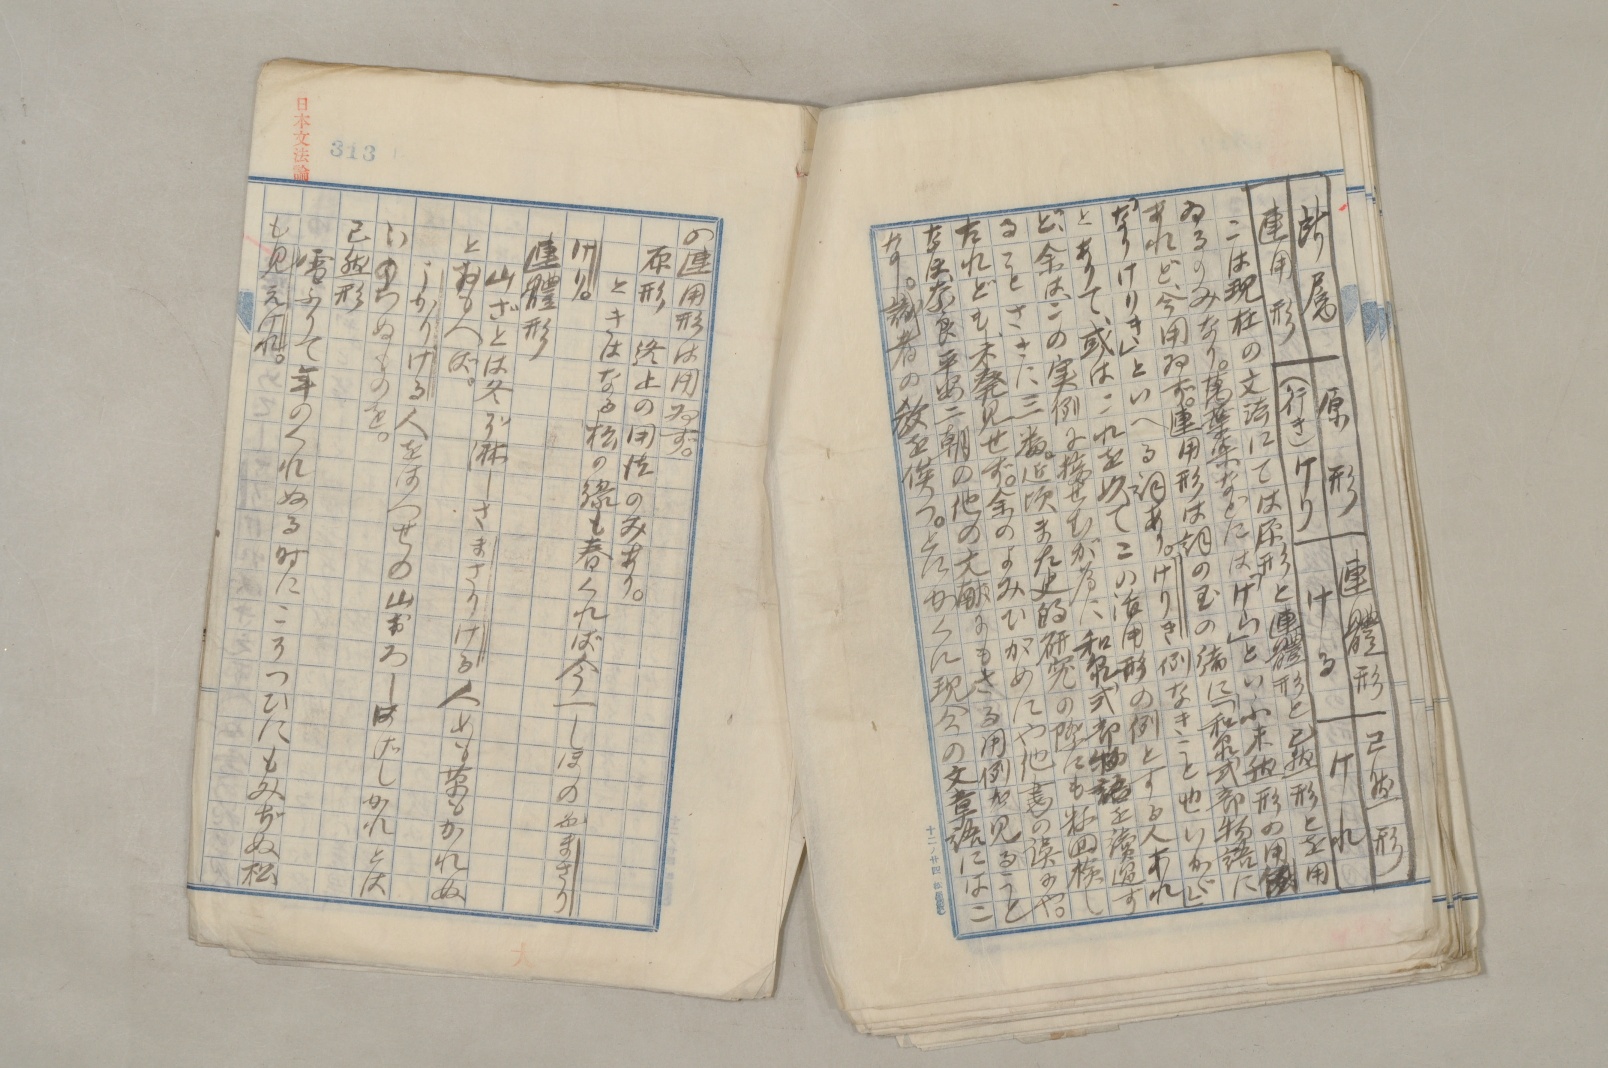 所屬 原形 連體形 已然形
連用形 (行き)けり ける けれ
こは現在の文法にては原形と連體形と已然形とを用
ゐるのみなり。萬葉集などには「けら」といふ未然形の用例
あれど、今用ゐず。連用形は詞の玉の緒に「和泉式部物語に
なりけりき」といへる詞あり。けりき例なきこと也いかゞ」
とありて、或はこれを以てこの活用形の例とする人あれ
ど、余はこの実例に接せむが爲に和泉式部物語を讀過す
ることさきに三数
たれども、未発見せず。余のよみひがめにや他書の誤にや。
奈良平安二朝の他の文献にもさる用例を見ること
なし。識者の教を俟つ。とにかくに現今の文章語にはこ
日本文法論
313
の連用形は用ゐず。
原形 終止の用法のみあり。
ときはなる松の緑も春くれば今一しほのいろまさり
けり。
連體形
山ざとは冬ぞ淋しさまさりける人めも草もかれぬ
とおもへば。
うかりける人をはつせの山おろしはげしかれとは
いのらぬものを。
已然形
雪ふりて年のくれぬる時にこそつひにもみぢぬ松
も見えけれ。